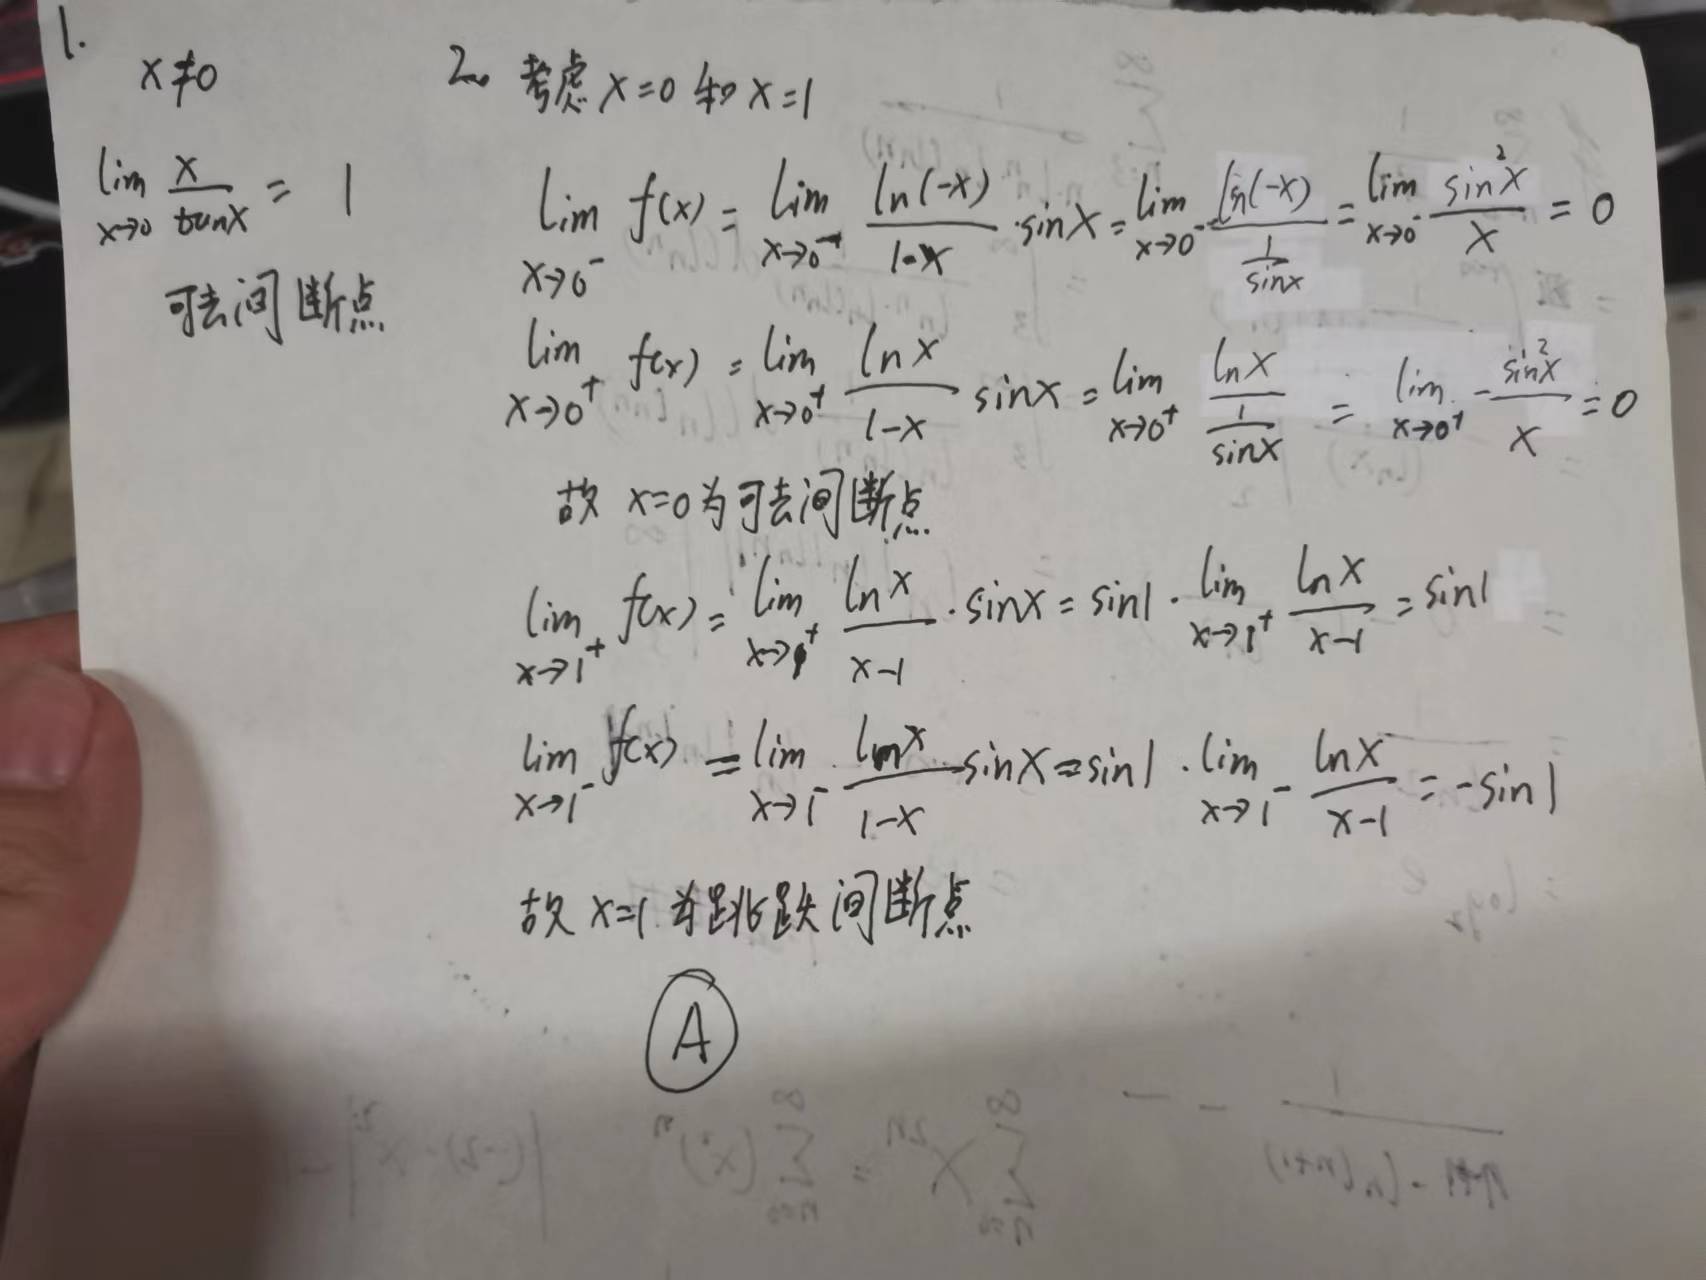 1.
x≠0
lim x→0 x/tanx = 1
可去间断点
2. 考虑 x=0 和 x=1
lim x→0⁻ f(x) = lim x→0⁻ ln(-x)/(1-x) · sinx = lim x→0⁻ ln(-x)/(1/sinx) = lim x→0⁻ sin²x/x = 0
lim x→0⁺ f(x) = lim x→0⁺ lnx/(1-x) sinx = lim x→0⁺ lnx/(1/sinx) = lim x→0⁺ -sin²x/x = 0
故 x=0为可去间断点
lim x→1⁺ f(x) = lim x→1⁺ lnx/(x-1) · sinx = sin1 · lim x→1⁺ lnx/(x-1) = sin1
lim x→1⁻ f(x) = lim x→1⁻ lnx/(1-x) sinx = sin1 · lim x→1⁻ lnx/(x-1) = -sin1
故 x=1 为跳跃间断点
A